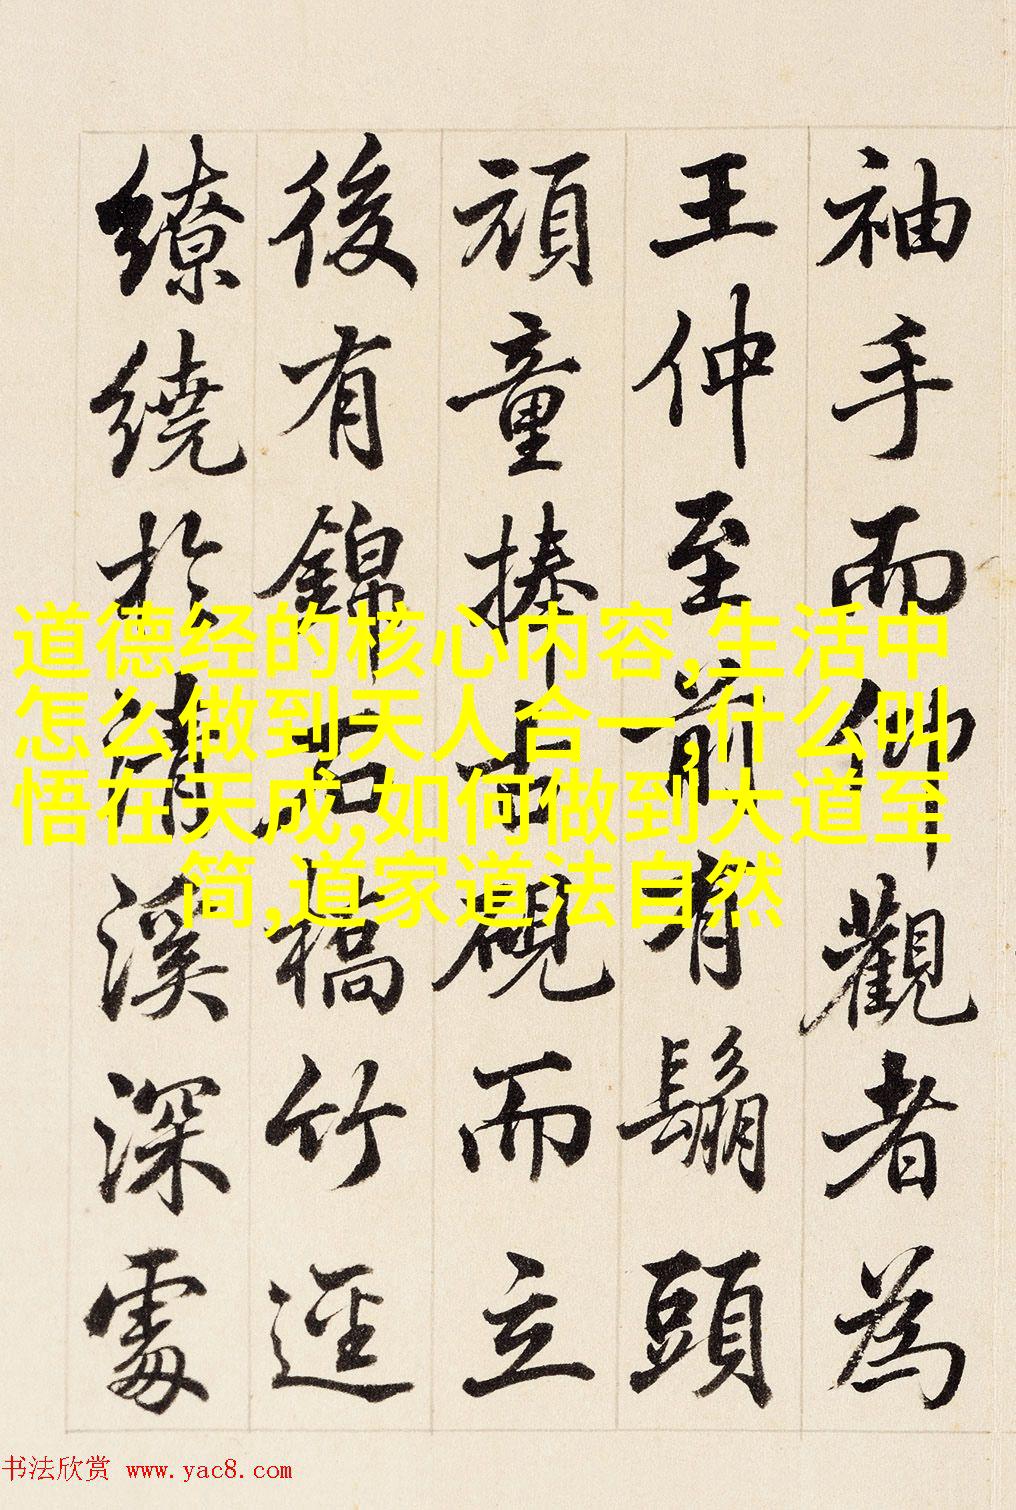 袖手而仰觀者為
王仲至前有鬅頭
頑童捧古硯而立
後有錦石橋竹逕
繚繞於清溪深處
道德经的核心内容,生活中
怎么做到天人合一,什么叫
悟在天成,如何做到大道至
简,道家道法自然
书法欣赏 www.yac8.com